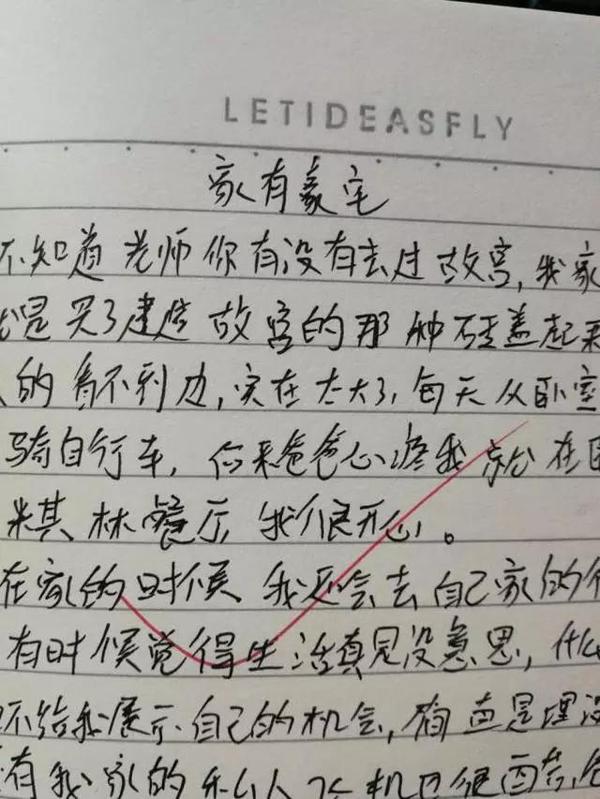 LETIDEASFLY
家有豪宅
不知道老师你有没有去过故宫,我家
是买了建造故宫的那种砖盖起来
的看不到边,实在太大了,每天从卧室
骑自行车,后来爸爸心疼我就在
米其林餐厅,我很开心。
在家的时候 我还会去自己家的
有时候觉得生活真是没意思,什么
不给我展示自己的机会,简直是埋没
有我家的私人飞机也很